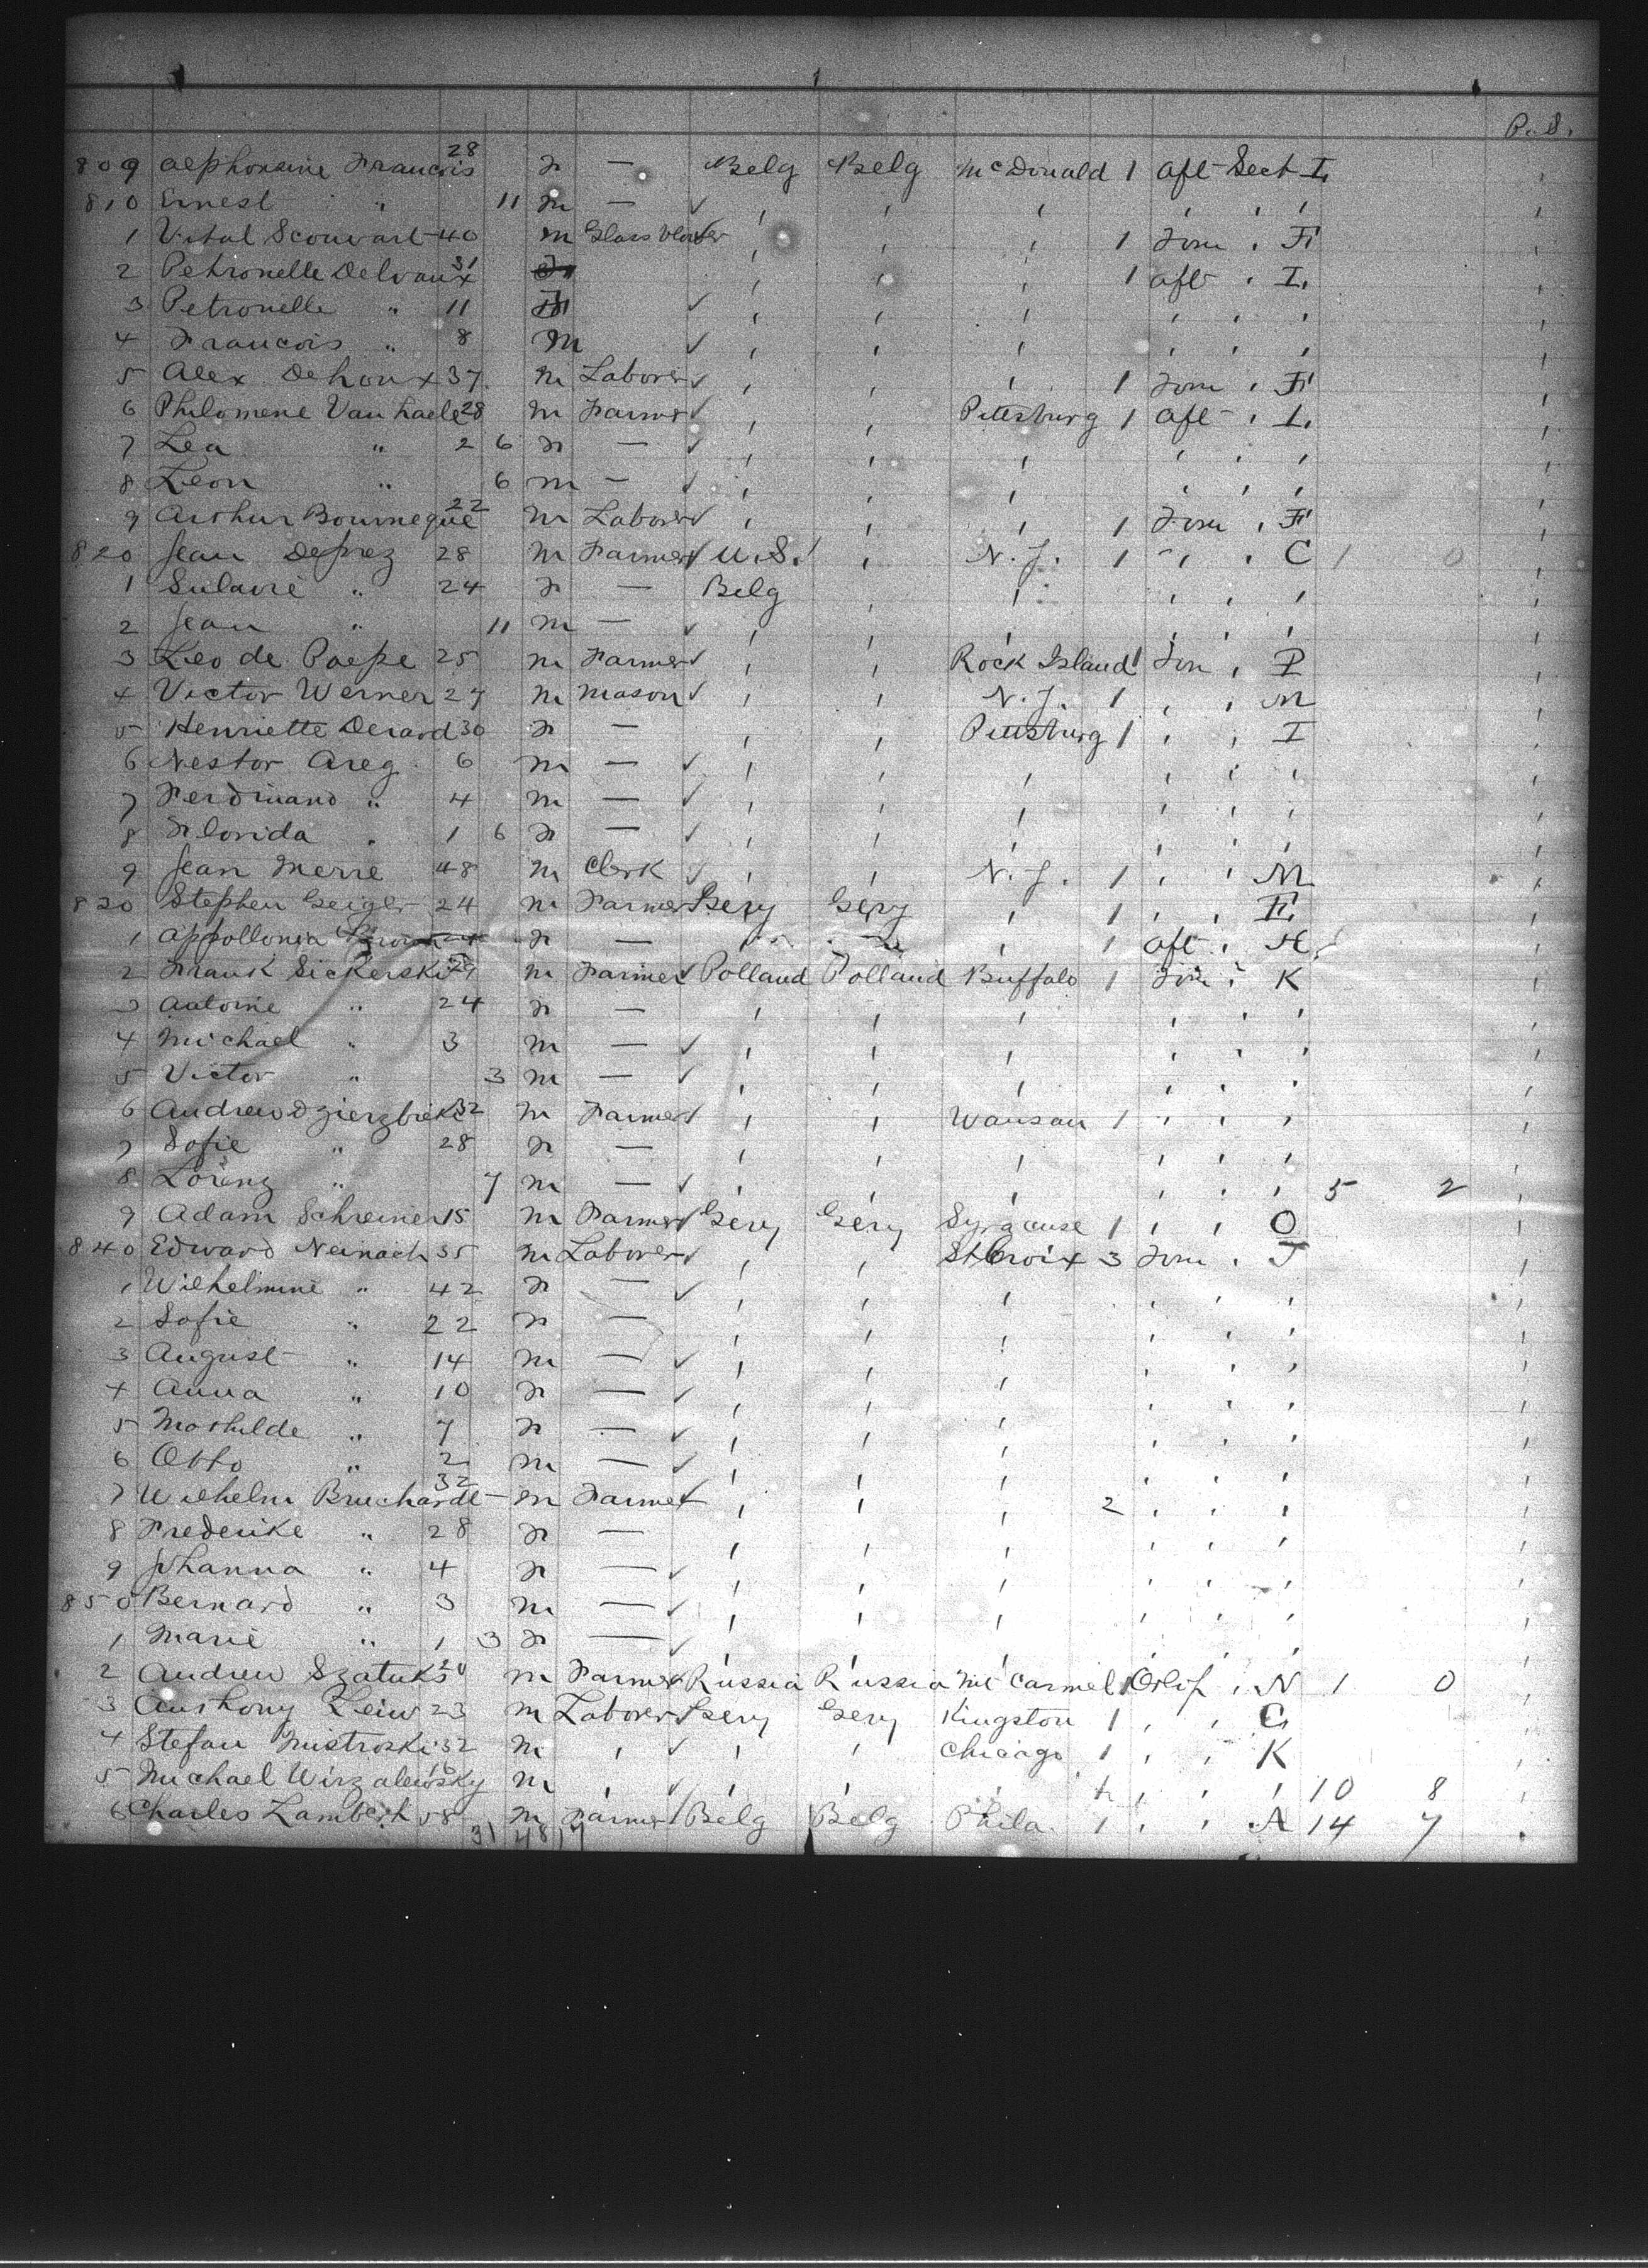 P.S.
809 Alphonsine Francois 28 F — Belg Belg McDonald 1 Aft Sect I
810 Ernest " 11 M — ✓ ' ' ' ' ' '
1 Vital Scouvart 40 M Glass blower ' ' ' 1 Forw ' F
2 Petronelle Delvaux 31 F ' ' ' 1 aft ' I
3 Petronelle " 11 F ✓ ' ' ' ' ' '
4 Francois " 8 M ✓ ' ' ' ' ' '
5 Alex Dehoux 37 M Laborer ✓ ' ' ' 1 Forw ' F
6 Philomene Van haele 28 M Farmer ✓ ' ' Pittsburg 1 Aft ' I
7 Lea " 2 6 F — ✓ ' ' ' ' ' '
8 Leon " 6 M — ✓ ' ' ' ' ' '
9 Arthur Bourneque 22 M Laborer ✓ ' ' ' 1 Forw ' F
820 Jean Deprez 28 M Farmer ✓ U.S. ' N.J. 1 ' ' C 1 0
1 " 24 F — Belg ' ' ' ' '
2 Jean " 11 M — ✓ ' ' ' ' ' '
3 Leo de Paepe 25 M Farmer ✓ ' ' Rock Island 1 For ' P
4 Victor Werner 27 M Mason ✓ ' ' N.J. 1 ' ' M
5 Henriette Derard 30 F — ' ' Pittsburg 1 ' ' I
6 Nestor Areg 6 M — ✓ ' ' ' ' ' '
7 Ferdinand " 4 M — ✓ ' ' ' ' ' '
8 Florida " 1 6 F — ✓ ' ' ' ' ' '
9 Jean Merre 48 M Clerk ✓ ' ' N.J. 1 ' ' M
830 Stephen Geiger 24 M Farmer Gery Gery ' 1 ' ' E
1 Appollonia F — " " ' 1 aft ' H
2 Frank Sickerski 29 M Farmer ✓ Polland Polland Buffalo 1 For ' K
3 Antonie " 24 F — ' ' ' ' ' '
4 Michael " 3 M — ✓ ' ' ' ' ' '
5 Victor " 3 M — ✓ ' ' ' ' ' '
6 Andrew Dzierzbicki 32 M Farmer ✓ ' ' Wausau 1 ' ' '
7 Sofie " 28 F — ' ' ' ' ' '
8 Lorenz " 7 M — ✓ ' ' ' ' ' ' 5 2
9 Adam Schreiner 15 M Farmer ✓ Gery Gery Syracuse 1 ' ' O
840 Edward Neinach 35 M Laborer ✓ ' ' St Croix 3 Forw ' J
1 Wilhelmine " 42 F — ✓ ' ' ' ' ' '
2 Sofie " 22 F — ' ' ' ' ' '
3 August " 14 M — ✓ ' ' ' ' ' '
4 Anna " 10 F — ✓ ' ' ' ' ' '
5 Mathilde " 7 F — ✓ ' ' ' ' ' '
6 Otto " 2 M — ✓ ' ' ' ' ' '
7 Wilhelm Bruchardt 32 M Farmer ' ' ' 2 ' ' '
8 Frederike " 28 F — ' ' ' ' ' '
9 Johanna " 4 F — ✓ ' ' ' ' ' '
850 Bernard " 3 M — ✓ ' ' ' ' ' '
1 Marie " 1 3 F — ✓ ' ' ' ' ' '
2 Andrew Szatuks 20 M Farmer ✓ Russia Russia Mt Carmel 1 ' N 1 0
3 Anthony Leiw 23 M Laborer ✓ Gery Gery Kingston 1 ' ' C
4 Stefan Mistroski 32 M ' ✓ ' ' Chicago 1 ' ' K
5 Michael Wirzalewsky M ' ✓ ' ' ' ' ' ' 10 8
6 Charles Lambert 58 M Farmer ✓ Belg Belg Phila. 1 ' ' A 14 7
31